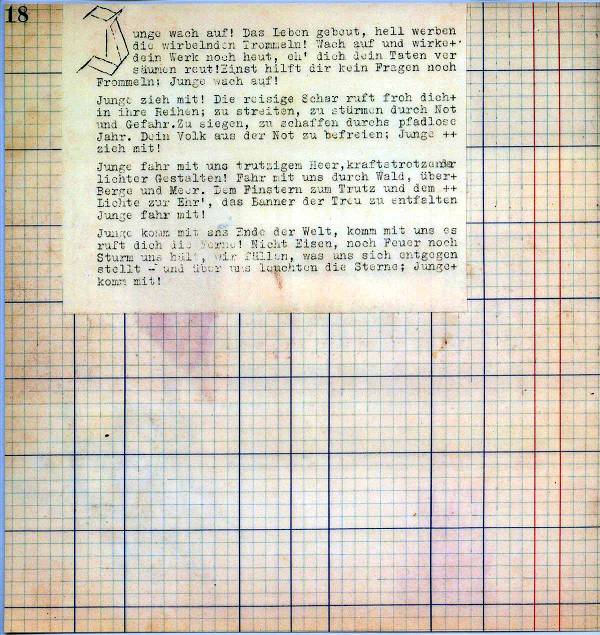 18
Junge wach auf! Das Leben gebeut, hell werben
die wirbelnden Trommeln! Wach auf und wirke+
dein Werk noch heut, eh' dich dein Taten ver
säumen reut!Einst hilft dir kein Fragen noch
Frommeln; Junge wach auf!
Junge zieh mit! Die reisige Schar ruft froh dich+
in ihre Reihen; zu streiten, zu stürmen durch Not
und Gefahr.Zu siegen, zu schaffen durchs pfadlose
Jahr. Dein Volk aus der Not zu befreien; Junge ++
zieh mit!
Junge fahr mit uns trutzigem Heer,kraftstrotzender
lichter Gestalten! Fahr mit uns durch Wald, über+
Berge und Meer. Dem Finstern zum Trutz und dem ++
Lichte zur Ehr', das Banner der Treu zu entfalten
Junge fahr mit!
Junge komm mit ans Ende der Welt, komm mit uns es
ruft dich die Ferne! Nicht Eisen, noch Feuer noch
Sturm uns hält, wir fällen, was uns sich entgegen
stellt - und über uns leuchten die Sterne; Junge+
komm mit!